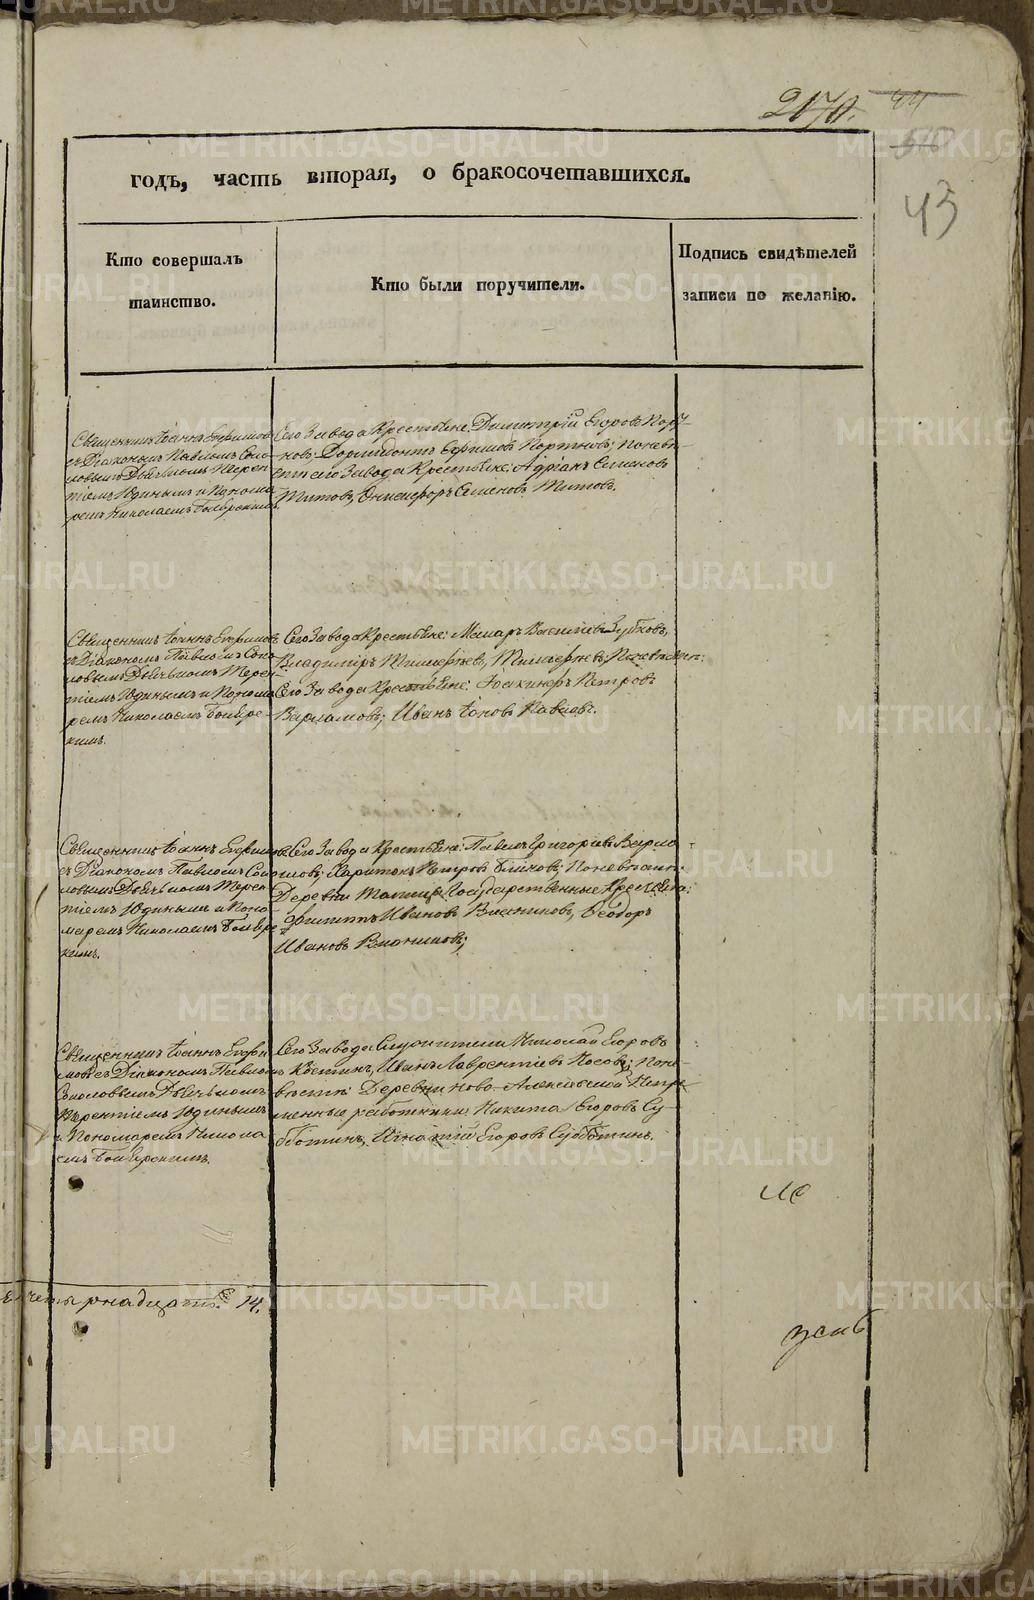 2170.
44
510
43
годъ, часть вторая, о бракосочетавшихся.
Кто совершалъ
таинство.
Кто были поручители.
Подпись свидѣтелей
записи по желанію.
Священникъ Іоаннъ Ефимовъ
съ Діакономъ Павломъ Соко-
ловымъ Дьячкомъ Терен-
тіемъ Юдинымъ и Понома-
ремъ Николаемъ
Сего Завода Крестьяне: Димитрій Егоровъ Порт-
новъ; Дормидонтъ Ефимовъ Портновъ; По невѣ-
стѣ сего Завода Крестьяне: Адріанъ Семеновъ
Титовъ, Онисифоръ Семеновъ Титовъ.
Священникъ Іоаннъ Ефимовъ
съ Діакономъ Павломъ Соко-
ловымъ Дьячкомъ Терен-
тіемъ Юдинымъ и Понома-
ремъ Николаемъ
кимъ.
Сего Завода Крестьяне: Макаръ Васильевъ Зубковъ,
Владиміръ
Сего Завода Крестьяне: Іоакимъ Петровъ
Варламовъ; Иванъ Іоновъ
Священникъ Іоаннъ Ефимовъ
съ Діакономъ Павломъ Соко-
ловымъ Дьячкомъ Терен-
тіемъ Юдинымъ и Поно-
маремъ Николаемъ
кимъ.
Сего Завода Крестьяне: Павелъ Григорьевъ Варла-
мовъ; Харитонъ Петровъ Блиновъ; По невѣстѣ:
Деревни Государственные Крестьяне:
Филиппъ Ивановъ Феодоръ
Ивановъ
Священникъ Іоаннъ Ефи-
мовъ съ Діакономъ Павломъ
Соколовымъ Дьячкомъ
Терентіемъ Юдинымъ
и Пономаремъ Никола-
емъ
Сего Завода Служители Николай Егоровъ
Костинъ, Иванъ Лаврентіевъ Носовъ; По не-
вѣстѣ Деревни Ново-Алексѣевской Непре-
менные работники: Никита Егоровъ Су-
бботинъ, Игнатій Егоровъ Субботинъ.
четырнадцать 14.
METRIKI.GASO-URAL.RU